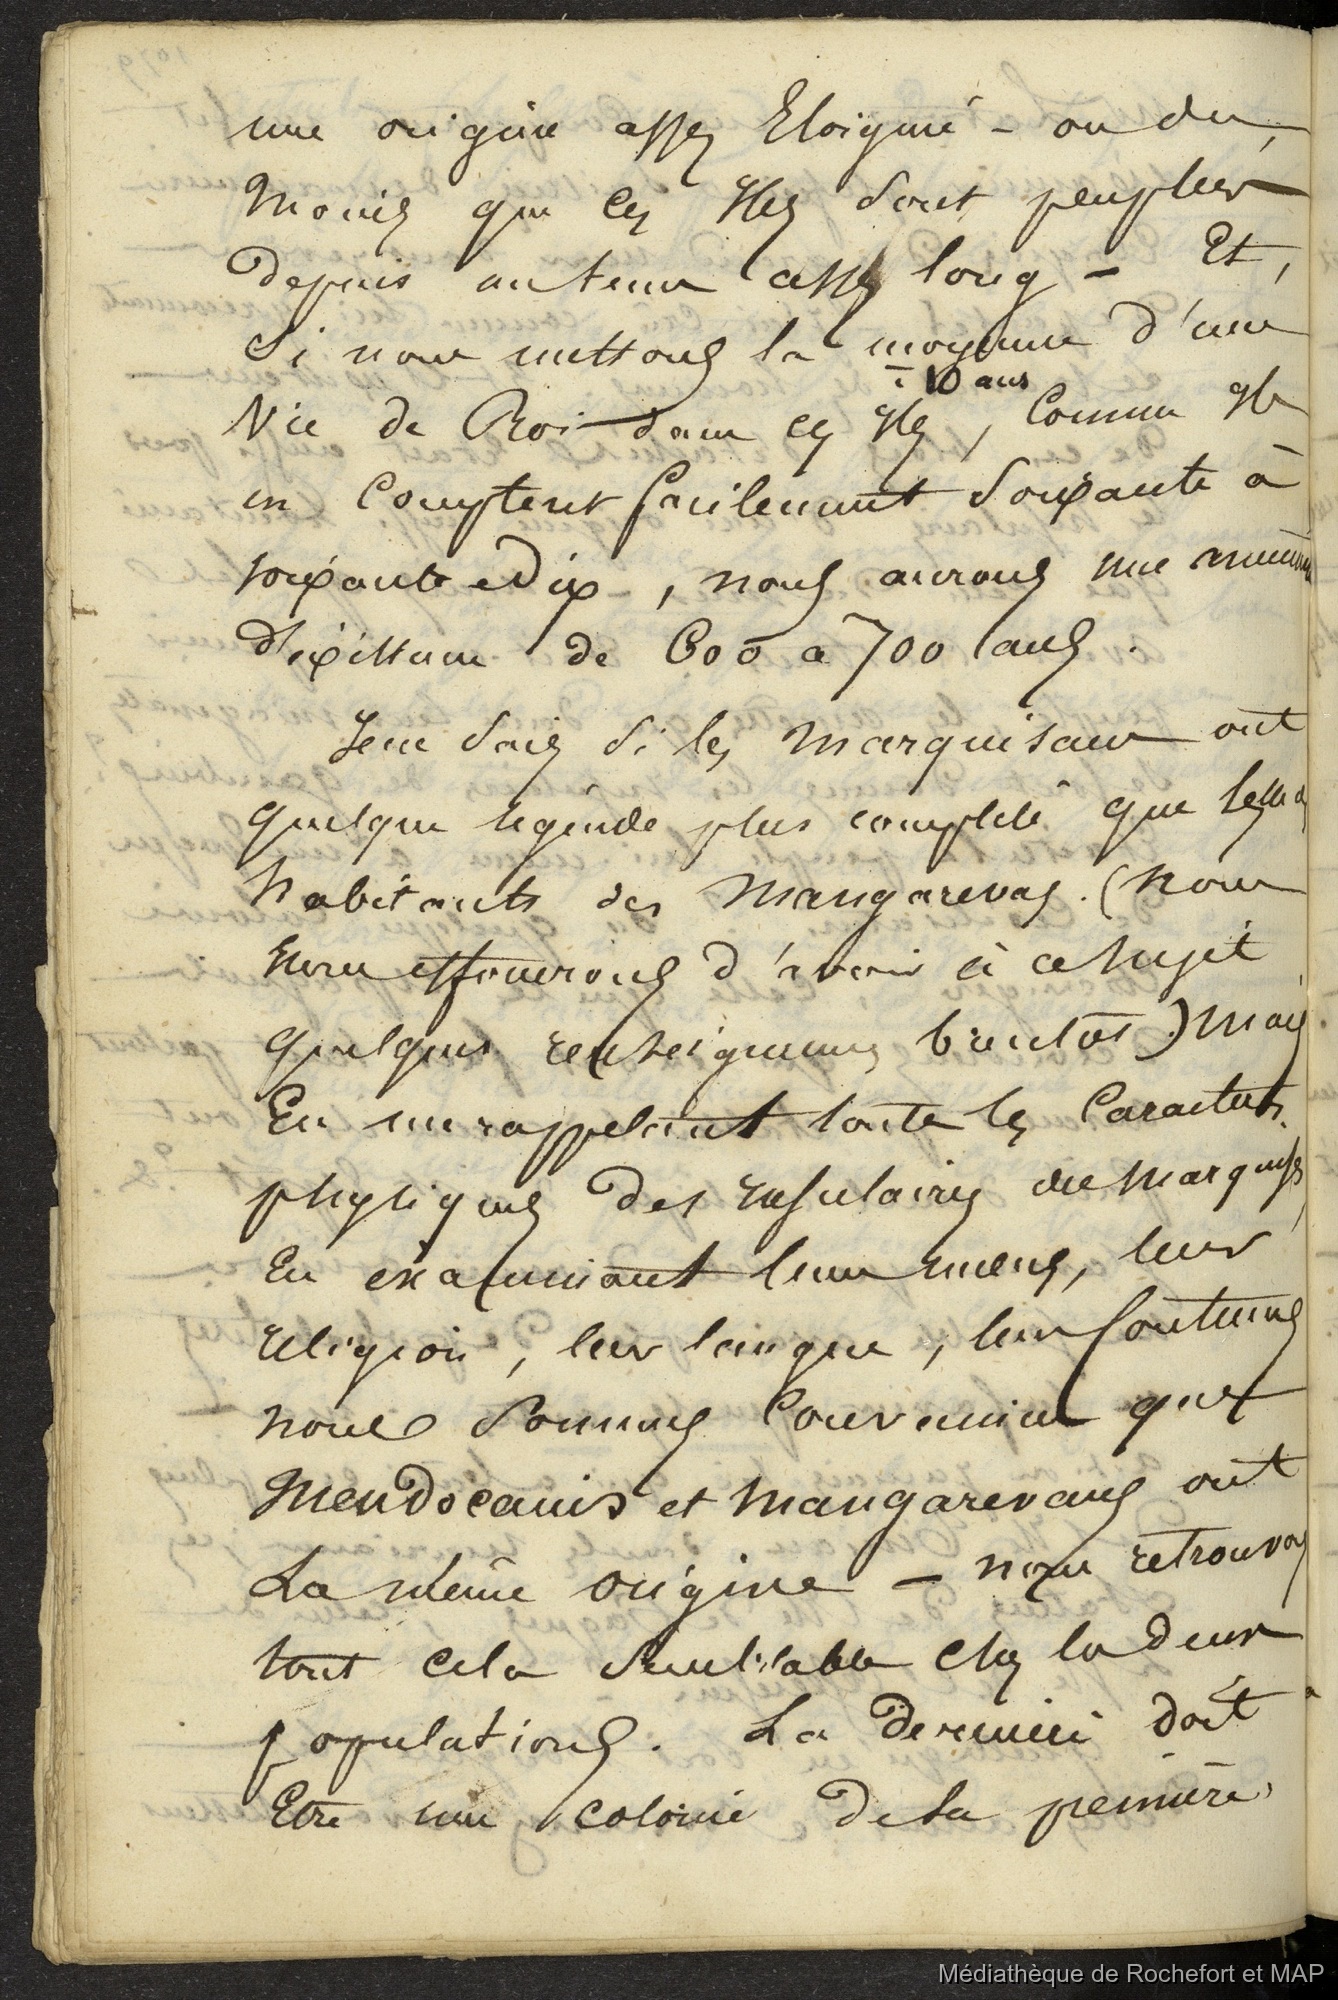 une origine assez Eloignée - ou du
Moins que ces Iles sont peuplées
depuis un tems assez long - Et,
Si nous mettons la moyenne d'une
= 10 ans
Vie de Roi dans ces Iles, Comme ils
en Comptent facilement Soixante à
soixante et Dix, nous aurons une
d'existence de 600 a 700 ans.
Je ne Sais Si les Marquisans ont
quelque légende plus complète que les
habitants des Mangarevas. (Nous
nous efforcerons d'avoir à ce Sujet
quelques renseignemens bientôt.) Mais
En me rappelant toute les Caractères
physiques des insulaires des Marquises,
En examinant leurs mœurs, leur
religion, leur langue, leur Coutumes
nous Sommes Convaincu que
Mendocains et Mangarevans ont
La même origine - nous retrouvons
tout cela Semblable Chez les deux
populations. La Dernière doit
Etre une colonie de la première